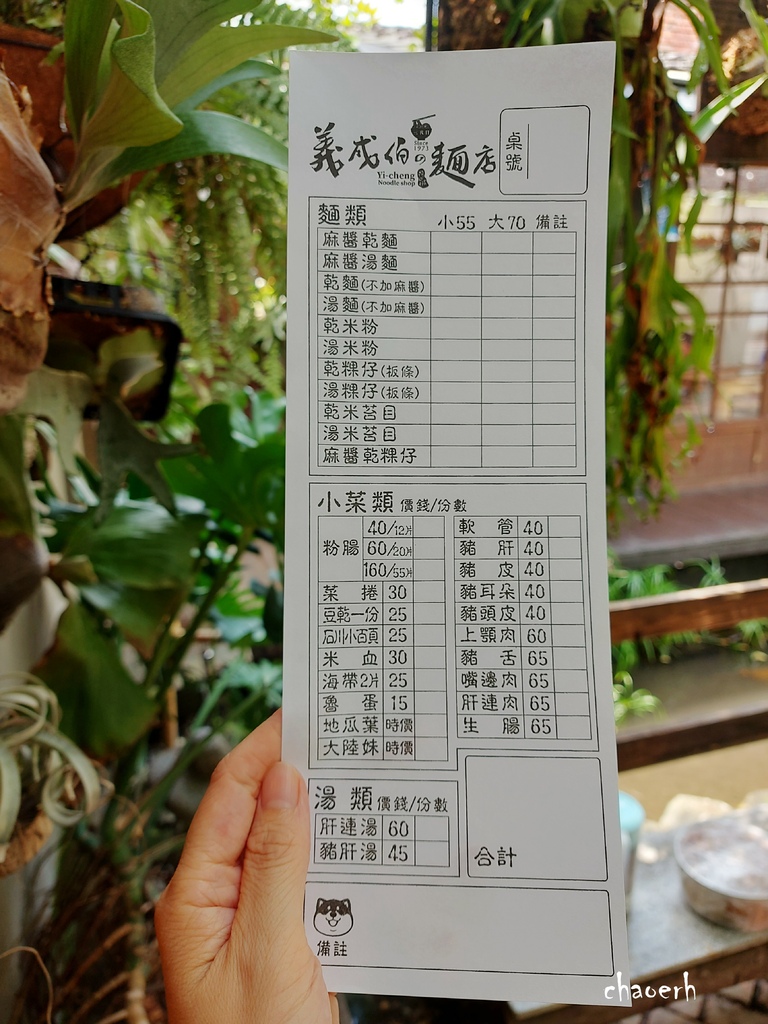 義成伯の麵店
Since 1973
Yi-cheng
Noodle shop
桌號
麵類 小55 大70 備註
麻醬乾麵
麻醬湯麵
乾麵(不加麻醬)
湯麵(不加麻醬)
乾米粉
湯米粉
乾粿仔(板條)
湯粿仔(板條)
乾米苔目
湯米苔目
麻醬乾粿仔
小菜類 價錢/份數
粉腸 40/12片
60/20片
160/55片
菜捲 30
豆乾一份 25
石川小百頁 25
米血 30
海帶2片 25
魯蛋 15
地瓜葉 時價
大陸妹 時價
軟管 40
豬肝 40
豬皮 40
豬耳朵 40
豬頭皮 40
上顎肉 60
豬舌 65
嘴邊肉 65
肝連肉 65
生腸 65
湯類 價錢/份數
肝連湯 60
豬肝湯 45
合計
備註
chaoerh